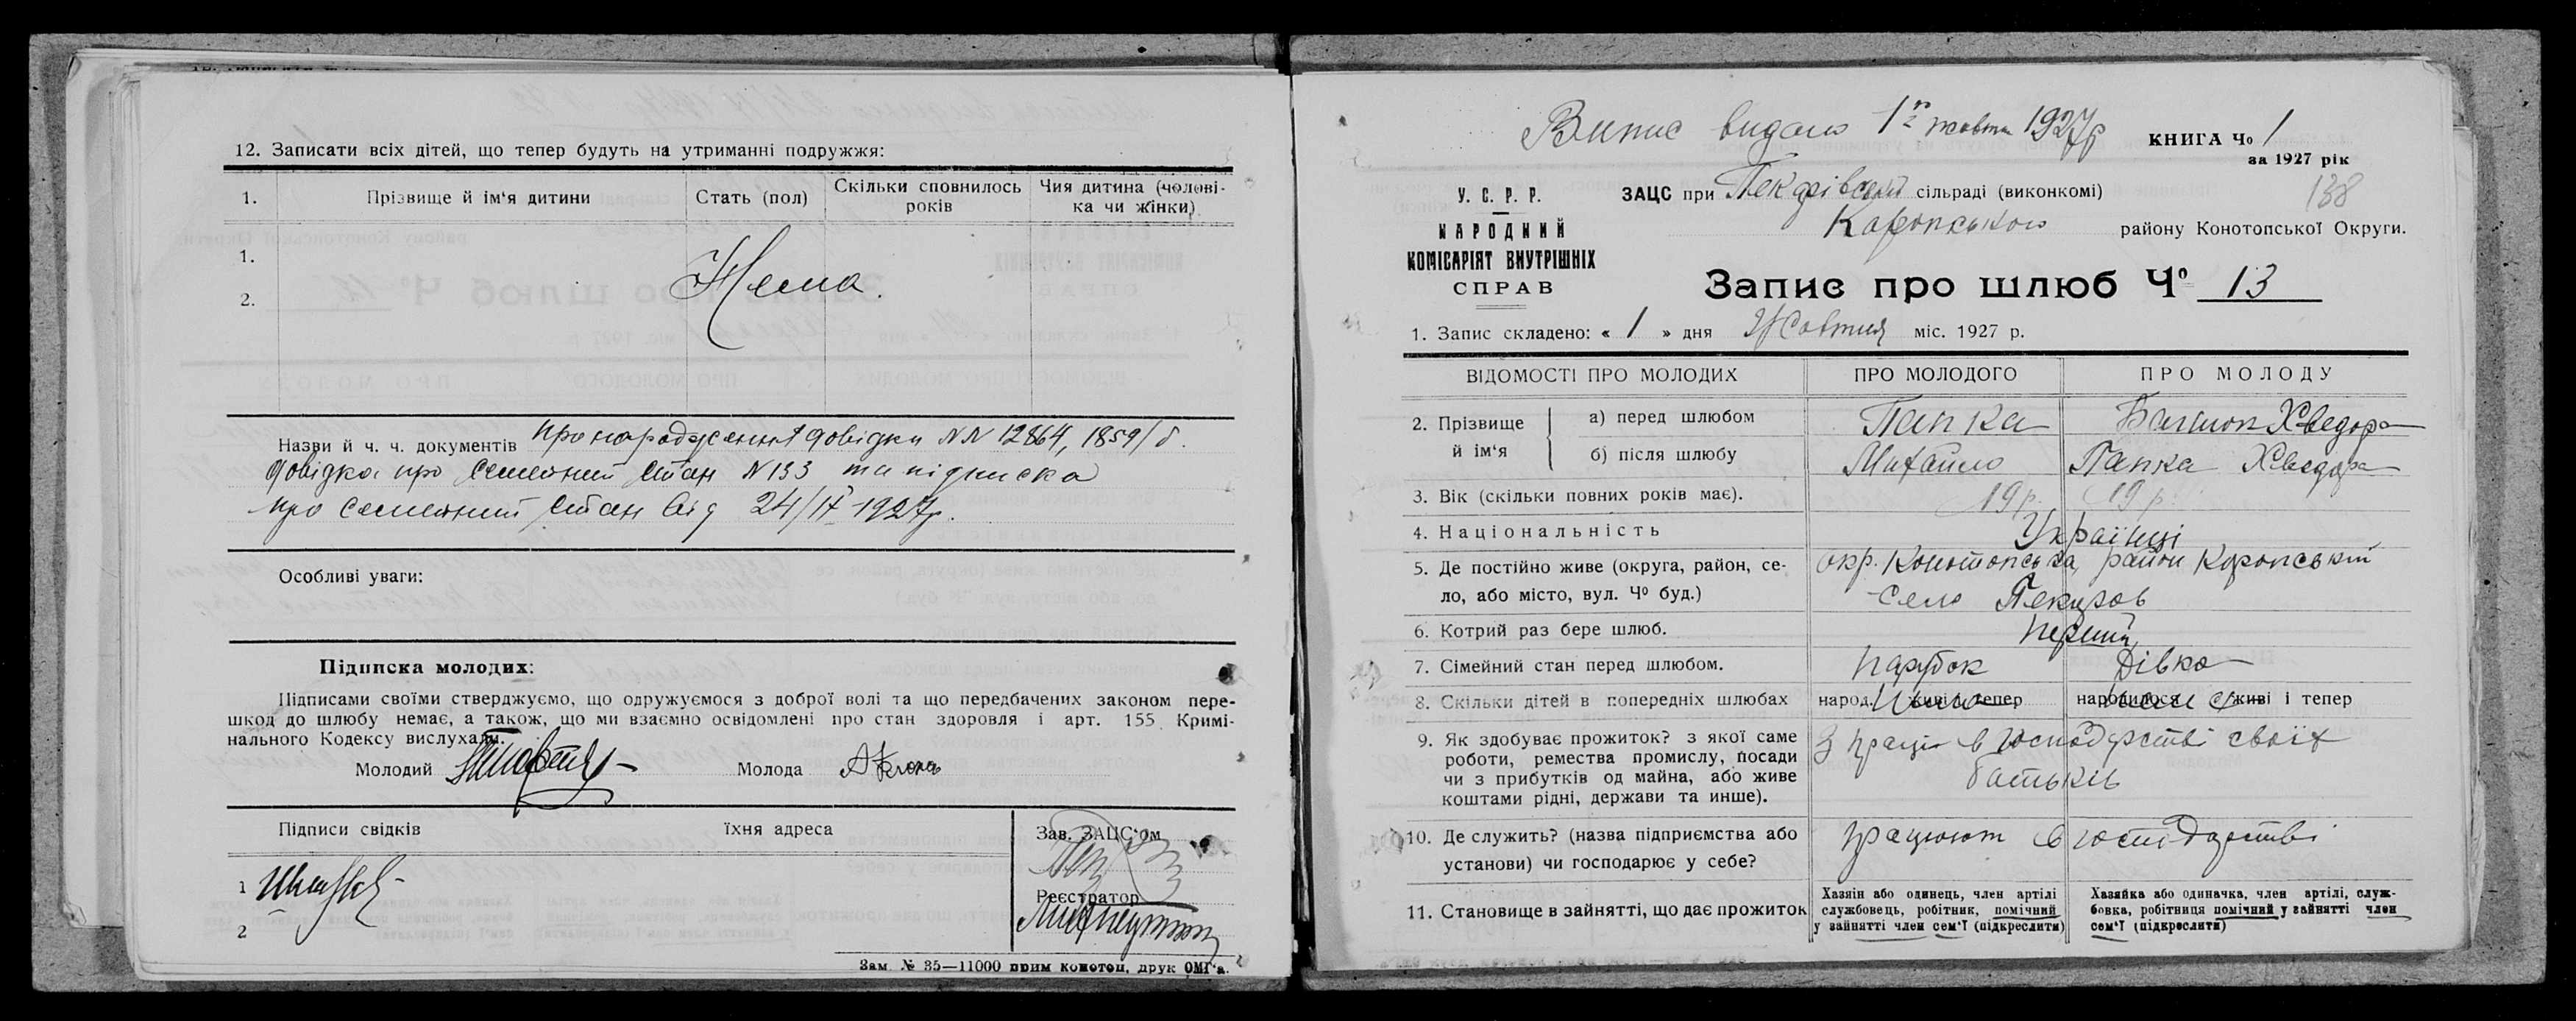 12. Записати всіх дітей, що тепер будуть на утриманні подружжя:
1. Прізвище й ім'я дитини Стать (пол) Скільки сповнилось років Чия дитина (чолові-ка чи жінки)
1.
2.
Нема.
Назви й ч. ч. документів про народження довідки NN 12864, 1859/б.
довідка про семейний стан N 133 та підписка
про семейний стан від 24/IX 1927р.
Особливі уваги:
Підписка молодих:
Підписами своїми стверджуємо, що одружуємося з доброї волі та що передбачених законом пере-
шкод до шлюбу немає, а також, що ми взаємно освідомлені про стан здоровля і арт. 155 Кримі-
нального Кодексу вислухали.
Молодий Молода
Підписи свідків Їхня адреса Зав. ЗАЦС'ом
1
Реєстратор
2
Зам № 35—11000 прим конотоп, друк ОМГ'а.
Випис видано 1го жовтн 1927р
КНИГА Ч° 1
за 1927 рік
138
У. С. Р. Р.
НАРОДНИЙ
КОМІСАРІЯТ ВНУТРІШНІХ
СПРАВ
ЗАЦС при сільраді (виконкомі)
Коропського району Конотопської Округи.
Запис про шлюб Ч° 13
1. Запис складено: « 1 » дня Жовтня міс. 1927 р.
ВІДОМОСТІ ПРО МОЛОДИХ ПРО МОЛОДОГО ПРО МОЛОДУ
2. Прізвище й ім'я
а) перед шлюбом Папка Хведора
б) після шлюбу Михайло Папка Хведора
3. Вік (скільки повних років має). 19 р. 19 р.
4. Національність Українці
5. Де постійно живе (округа, район, се- окр. Конотопська, район Коропський
ло, або місто, вул. Ч° буд.) село Пекарів
6. Котрий раз бере шлюб. Перший
7. Сімейний стан перед шлюбом. Парубок Дівка
8. Скільки дітей в попередніх шлюбах народ. живі тепер народилося живі і тепер
9. Як здобуває прожиток? з якої саме З праці в господарстві своїх
роботи, ремества промислу, посади батьків
чи з прибутків од майна, або живе
коштами рідні, держави та инше).
10. Де служить? (назва підприємства або працюют в господарстві
установи) чи господарює у себе?
11. Становище в зайнятті, що дає прожиток
Хазяін або одинець, член артілі
службовець, робітник, помічний
у зайнятті член сем'ї (підкреслити)
Хазяйка або одиначка, член артілі, служ-
бовка, робітниця помічний у зайнятті член
сем'ї (підкреслити)